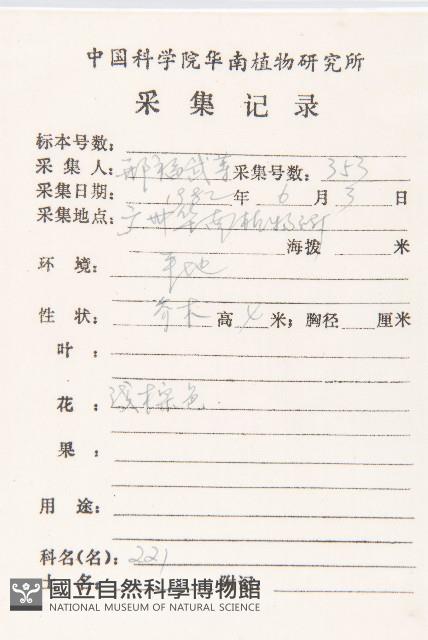 中国科学院华南植物研究所
采集记录
标本号数：
采集人：邢福武等 采集号数：353
采集日期：1982年6月3日
采集地点：广州华南植物所
海拨 米
环境：平地
性状：乔木 高4米；胸径 厘米
叶：
花：淡棕色.
果：
用途：
科名(名)：221
國立自然科學博物館
NATIONAL MUSEUM OF NATURAL SCIENCE